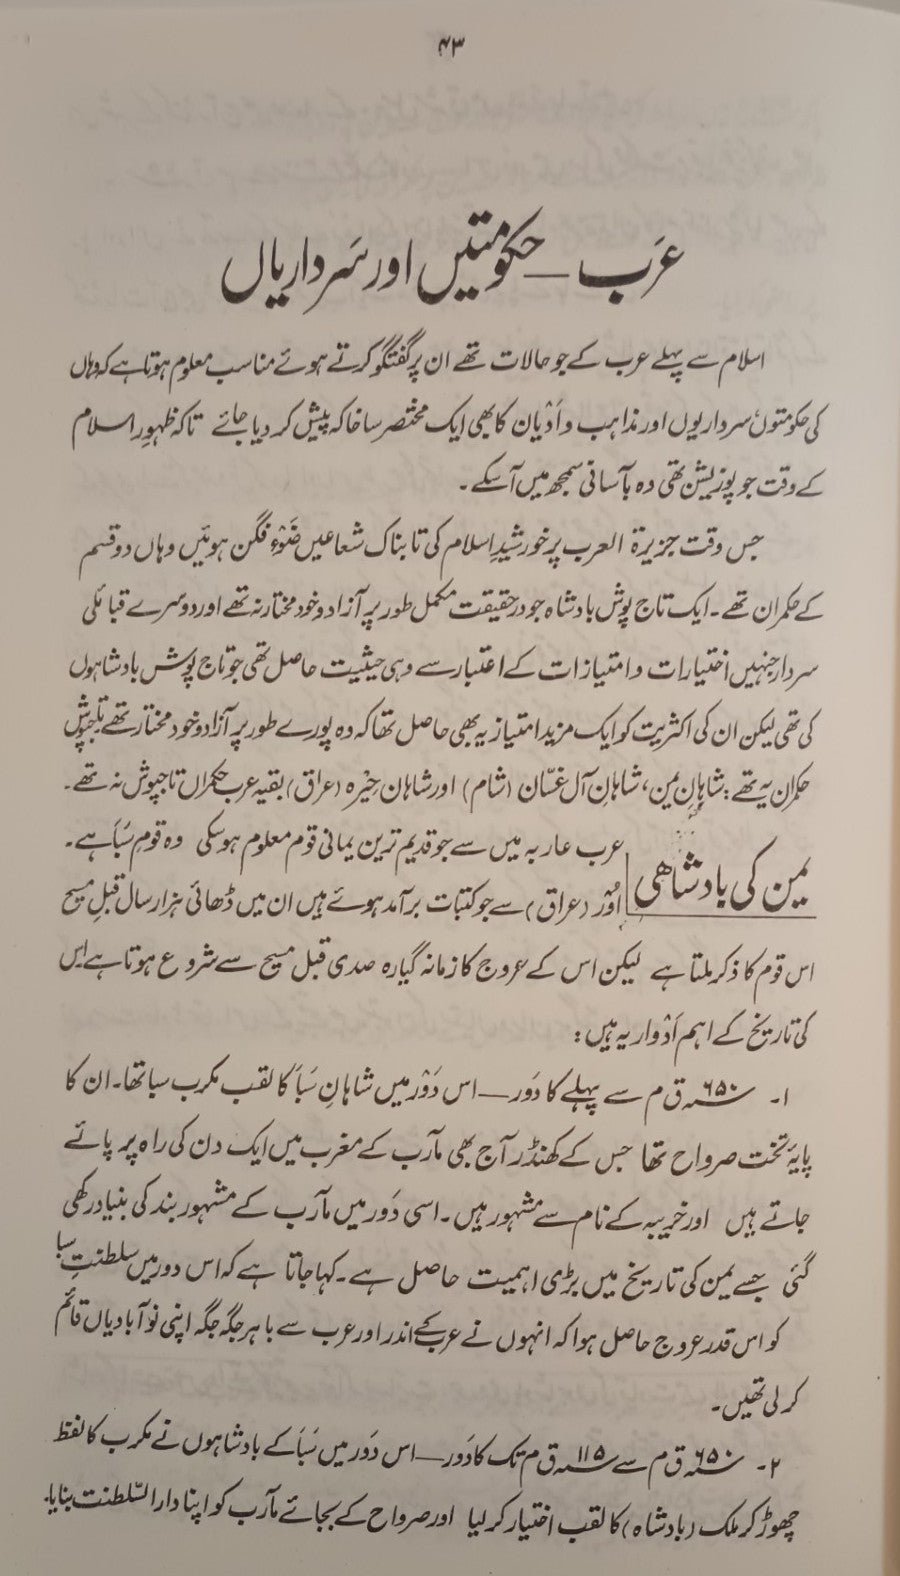 ۴۳
عرَب — حکومتیں اور سَرداریاں
اسلام سے پہلے عرب کے جو حالات تھے ان پر گفتگو کرتے ہوئے مناسب معلوم ہوتا ہے کہ وہاں
کی حکومتوں، سرداریوں اور مذاہب و اَدْیان کا بھی ایک مختصر سا خاکہ پیش کر دیا جائے تاکہ ظہورِ اسلام
کے وقت جو پوزیشن تھی وہ بآسانی سمجھ میں آ سکے۔
جس وقت جزیرۃ العرب پر خورشیدِ اسلام کی تابناک شعاعیں ضَوْء فگن ہوئیں وہاں دو قسم
کے حکمران تھے۔ ایک تاج پوش بادشاہ جو در حقیقت مکمل طور پر آزاد و خود مختار نہ تھے اور دوسرے قبائلی
سردار جنہیں اختیارات و امتیازات کے اعتبار سے وہی حیثیت حاصل تھی جو تاج پوش بادشاہوں
کی تھی لیکن ان کی اکثریت کو ایک مزید امتیاز یہ بھی حاصل تھا کہ وہ پورے طور پر آزاد و خود مختار تھے تاجپوش
حکمران یہ تھے: شاہانِ یمن، شاہانِ آلِ غسّان (شام) اور شاہانِ حِیْرہ (عراق) بقیہ عرب حکمراں تاجپوش نہ تھے۔
یمن کی بادشاھی
عرب عاربہ میں سے جو قدیم ترین یمانی قوم معلوم ہو سکی وہ قومِ سَبَا ہے۔
اُوْر (عراق) سے جو کتبات برآمد ہوئے ہیں ان میں ڈھائی ہزار سال قبلِ مسیح
اس قوم کا ذکر ملتا ہے لیکن اس کے عروج کا زمانہ گیارہ صدی قبل مسیح سے شروع ہوتا ہے اس
کی تاریخ کے اہم اَدْوار یہ ہیں:
۱- ۶۵۰؁ ق م سے پہلے کا دَور — اس دَوْر میں شاہانِ سَبَا کا لقب مکرب سبا تھا۔ ان کا
پایۂ تخت صرواح تھا جس کے کھنڈر آج بھی مآرب کے مغرب میں ایک دن کی راہ پر پائے
جاتے ہیں اور خریبہ کے نام سے مشہور ہیں۔ اسی دَور میں مآرب کے مشہور بند کی بنیاد رکھی
گئی جسے یمن کی تاریخ میں بڑی اہمیت حاصل ہے۔ کہا جاتا ہے کہ اس دور میں سلطنتِ سبا
کو اس قدر عروج حاصل ہوا کہ انہوں نے عرب کے اندر اور عرب سے باہر جگہ جگہ اپنی نو آبادیاں قائم
کر لی تھیں۔
۲- ۶۵۰؁ ق م سے ۱۱۵؁ ق م تک کا دَور — اس دَور میں سَبَا کے بادشاہوں نے مکرب کا لفظ
چھوڑ کر ملک (بادشاہ) کا لقب اختیار کر لیا اور صرواح کے بجائے مآرب کو اپنا دار السّلطنت بنایا۔